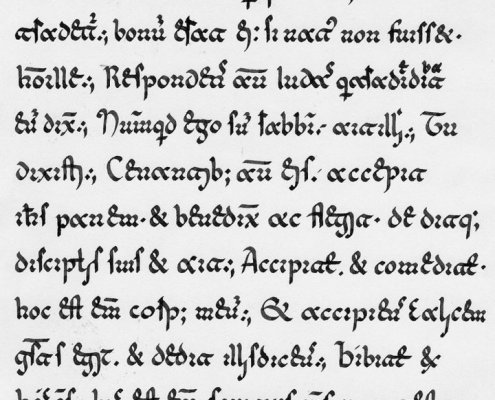 tradet̄.; bonū erat ei: si nat᾽ non fuisset.
hō ille.; Respondens aū Iudas q tradidit
eū dix̄.; Numqd ego sū rabbi.- ait illi.; Tu
dixisti.; Cenantib; aū eis. accepit
ih̄s panem. & benedix̄ ac fregit. deditq;
discipulis suis & ait.; Accipite. & comedite.
hoc est enī corp; meū.; & accipiens calicem
gr̄as egit. & dedit illis dicens.; Bibite ex